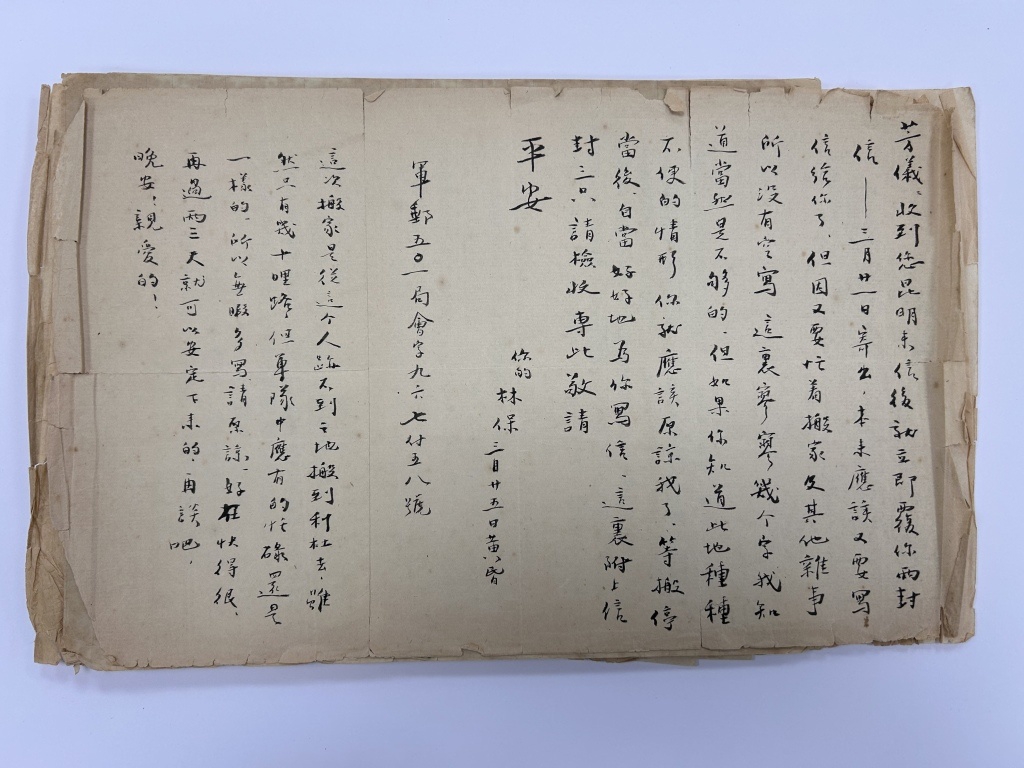 芳儀：收到您昆明来信後就立即覆你两封
信——三月廿一日寄出，本来應該又要寫
信给你了，但因又要忙着搬家及其他雜事
所以没有空寫 這裏寥寥幾个字我知
道當然是不够的，但如果你知道此地種種
不便的情形 你就應該原諒我了、等搬停
當後、自當好好地為你寫信、這裏附上信
封三只請檢收專此敬請
平安
你的
林保
三月廿五日黄昏
軍郵五〇一局會字九六七付五八號
這次搬家是從這个人跡不到之地搬到村杜去，雖
然只有幾十哩路，但軍隊中應有的忙碌還是
一樣的、所以無暇多寫請原諒、好在快得很、
再過两三天就可以安定下来的，再談吧，
晚安，親爱的！